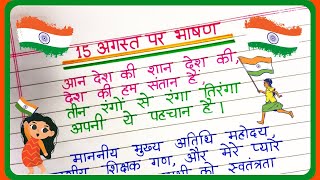 15 अगस्त पर भाषण
आन देश की शान देश की,
देश की हम संतान हैं
तीन रंगों से रंगा तिरंगा
अपनी ये पहचान हैं।
माननीय मुख्य अतिथि महोदय,
शिक्षक गण, और मेरे प्यारे
की स्वतंत्रता